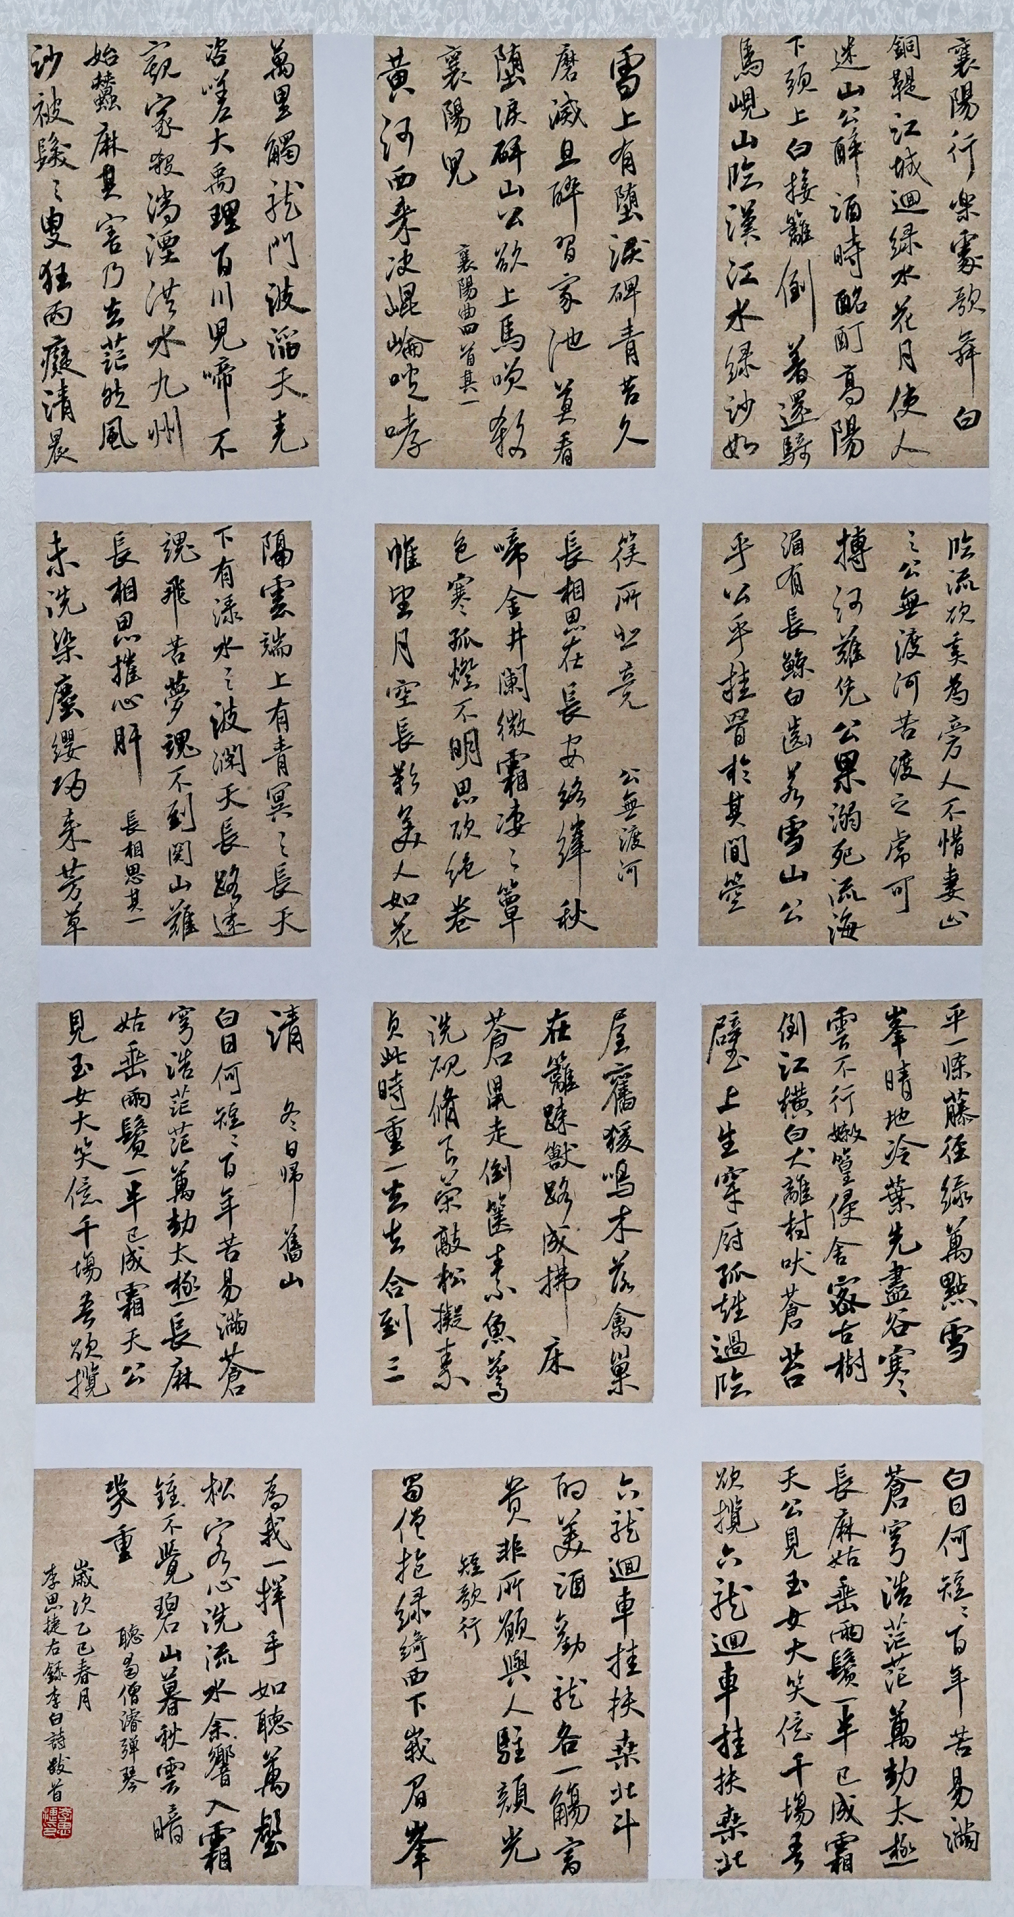 襄陽行樂處歌舞白
銅鞮江城迴綠水花月使人
迷山公醉酒時酩酊高陽
下頭上白接籬倒著還騎
馬峴山臨漢江水綠沙如
雪上有墮淚碑青苔久
磨滅且醉習家池莫看
墮淚碑山公欲上馬笑殺
襄陽兒
襄陽曲四首其一
黃河西來決崐崘咆哮
萬里觸龍門波滔天堯
咨嗟大禹理百川兒啼不
窺家殺湍湮洪水九州
始蠶麻其害乃去茫然風
沙被髮之叟狂而癡清晨
臨流欲奚為旁人不惜妻止
之公無渡河苦渡之虎可
搏河難凭公果溺死流海
湄有長鯨白齒若雪山公
乎公乎挂罥於其間箜
篌所悲竟
公無渡河
長相思在長安絡緯秋
啼金井闌微霜凄凄簟
色寒孤燈不明思欲絕卷
帷望月空長歎美人如花
隔雲端上有青冥之長天
下有淥水之波瀾天長路遠
魂飛苦夢魂不到關山難
長相思摧心肝
長相思其一
未洗染塵纓歸來芳草
平一條藤徑綠萬點雪
峯晴地冷葉先盡谷寒
雲不行嫩篁侵舍密古樹
倒江橫白犬離村吠蒼苔
壁上生穿厨孤雉過臨
屋舊猨鳴木落禽巢
在籬踈獸路成拂床
蒼鼠走倒篋素魚驚
洗硯脩良策敲松擬素
貞此時重一去去合到三
清
冬日歸舊山
白日何短短百年苦易滿蒼
穹浩茫茫萬劫太極長麻
姑垂兩鬢一半已成霜天公
見玉女大笑億千塲吾欲攬
白日何短短百年苦易滿
蒼穹浩茫茫萬劫太極
長麻姑垂兩鬢一半已成霜
天公見玉女大笑億千塲吾
欲攬六龍迴車挂扶桑北
六龍迴車挂扶桑北斗
酌美酒勸龍各一觴富
貴非所願與人駐顏光
短歌行
蜀僧抱綠綺西下峩眉峯
為我一揮手如聽萬壑
松客心洗流水余響入霜
鍾不覺碧山暮秋雲暗
幾重
聽蜀僧濬彈琴
歲次乙巳春月
李思捷右錄李白詩數首